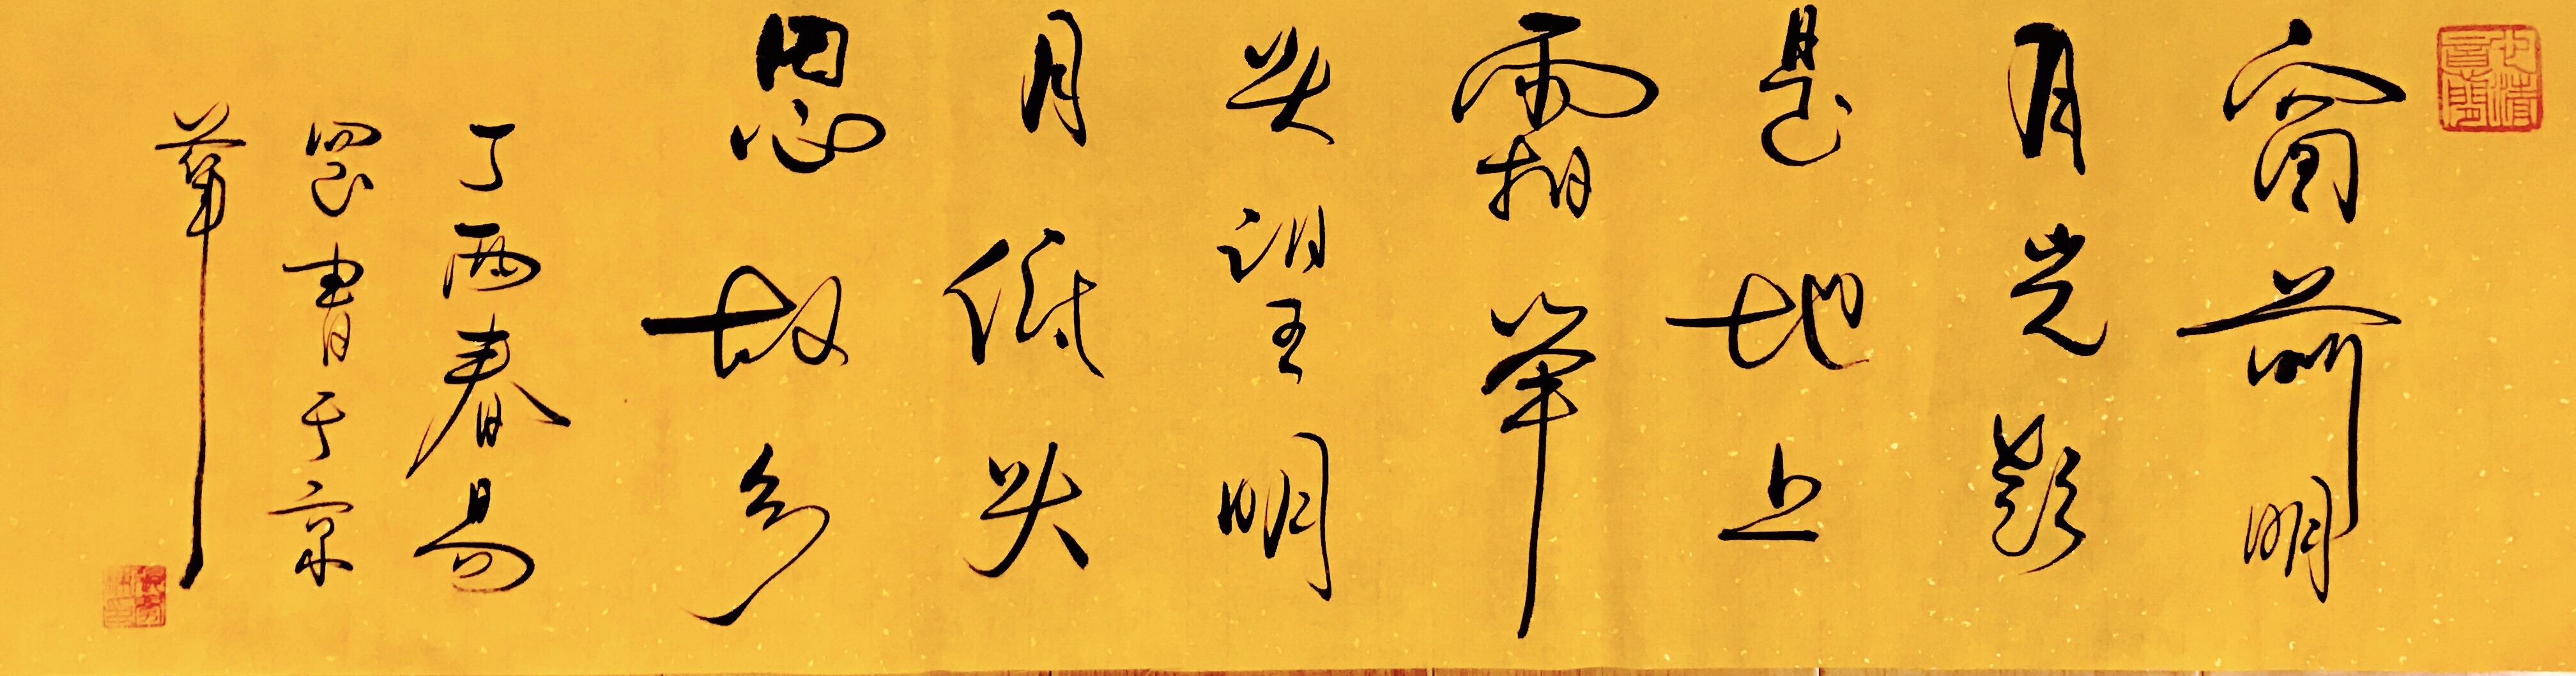 窗前明
月光疑
是地上
霜举
头望明
月低头
思故乡
丁酉春易
罡書于京
華